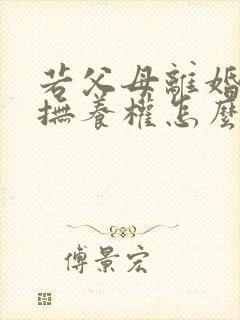 若父母離婚
撫養權怎麼
傅景宏